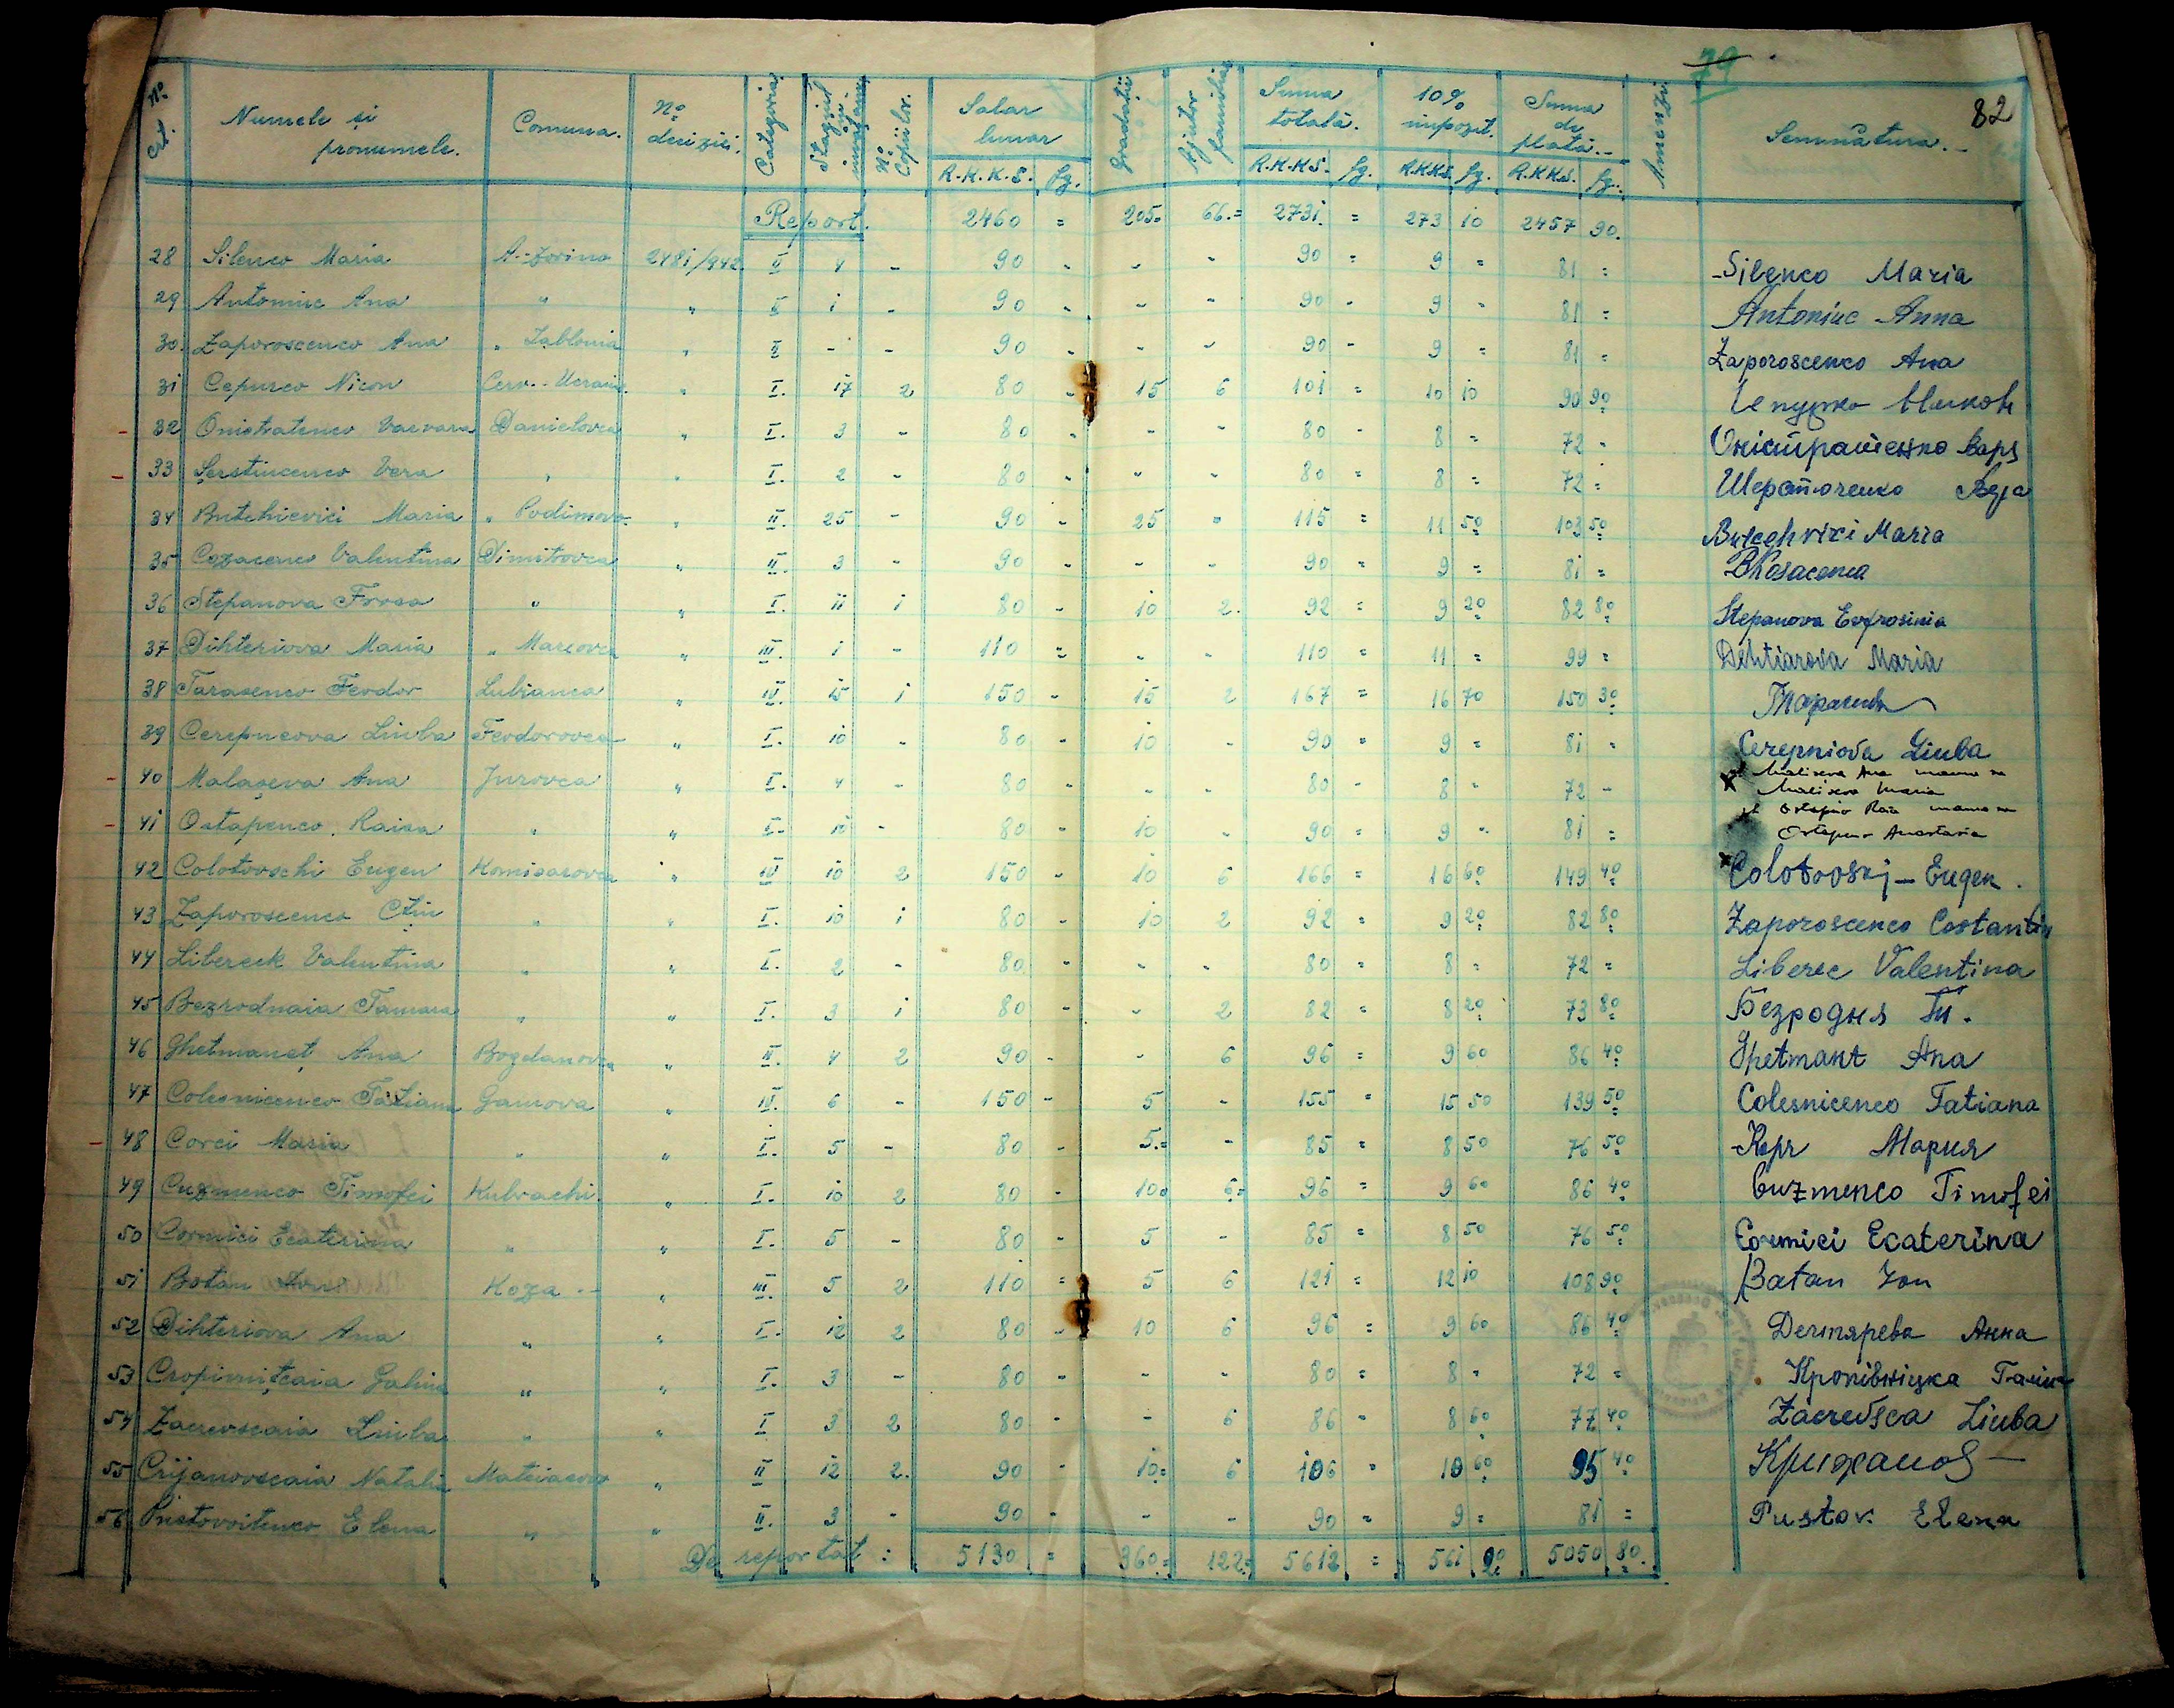 79
82
No. Crt. Numele și pronumele. Comuna. No. deciziei. Categoria Stagiul în învățăm. No. Copiilor. Salar lunar Gradații Ajutor familiar Suma totală. 10% impozit. Suma de plată.- Amenzi Semnătura.-
R.K.K.S. fg. R.K.K.S. fg. R.K.K.S. fg. R.K.K.S. fg.
Report. 2460 = 205= 66.= 2731. = 273 10 2457 90.
28 Silenco Maria A.-Zorino 2481/942 II 4 - 90 - - - 90 = 9 = 81 = Silenco Maria
29 Antoniuc Ana " " II 1 - 90 - - - 90 - 9 - 81 = Antoniuc Anna
30. Zaporoscenco Ana " Iablonia " II - - 90 - - - 90 - 9 = 81 = Zaporoscenco Ana
31 Cepurco Nicon Cerv.-Ucraina " I. 17 2 80 - 15 6 101 = 10 10 90 90 Чепурко
32 Onistratenco Varvara Danielovca " I. 3 - 80 - - - 80 - 8 = 72 - Оністратенко Варв
33 Șerstincenco Vera " " I. 2 - 80 - - - 80 = 8 = 72 =
34 Butchievici Maria " Podimovo " II. 25 - 90 - 25 = 115 = 11 50 103 50 Butcehvici Maria
35 Cozacenco Valentina Dimitrovca " II. 3 - 90 - - - 90 = 9 = 81 =
36 Stepanova Frosa " " I. 11 1 80 - 10 2. 92 = 9 20 82 80 Stepanova Evfrosinia
37 Dihteriova Maria " Marcovca " III. 1 - 110 = - - 110 = 11 = 99 = Dehtiarova Maria
38 Tarasenco Feodor Lubianca " IV. 15 1 150 - 15 2 167 = 16 70 150 30
39 Cerepneova Liuba Feodorovca " I. 10 - 80 - 10 - 90 = 9 = 81 - Cerepniova Liuba
40 Malașeva Ana Jurovca " I. 4 - 80 - - - 80 - 8 - 72 - Malișeva Ana mama sa
Malișeva Maria
41 Ostapenco Raisa " " I. 10 - 80 - 10 - 90 = 9 - 81 = Ostapenco Raia mama sa
Ostapenco Anastasia
42 Colotovschi Eugen Komisarovca " IV 10 2 150 - 10 6 166 = 16 60 149 40 Colotovskj-Eugen.
43 Zaporoscenco C-tin " " I. 10 1 80 - 10 2 92 = 9 20 82 80 Zaporoscenco Costantin
44 Libereck Valentina " " I. 2 - 80 - - - 80 = 8 = 72 = Liberec Valentina
45 Bezrodnaia Tamara " " I. 3 1 80 - - 2 82 = 8 20 73 80 Безродня Т.
46 Ghetmaneț Ana Bogdanovca " II. 4 2 90 - - 6 96 = 9 60 86 40 Ghetmant Ana
47 Colesnicenco Tatiana Gamova " IV. 6 - 150 - 5 - 155 = 15 50 139 50 Colesnicenco Tatiana
48 Corci Maria " " I. 5 - 80 - 5.= - 85 = 8 50 76 50 Корч Мария
49 Cuzmenco Timofei Kubrachi. " I. 10 2 80 - 10= 6= 96 = 9 60 86 40 Cuzmenco Timofei
50 Cormici Ecaterina " " I. 5 - 80 - 5 - 85 = 8 50 76 50 Cormici Ecaterina
51 Botan Koza - " III. 5 2 110 = 5 6 121 = 12 10 108 90 Batan Ion
52 Dihteriova Ana " " I. 12 2 80 - 10 6 96 = 9 60 86 40 Дегтярева Анна
53 Cropivnițcaia Galina " " I. 3 - 80 - - - 80 = 8 = 72 = Кропівніцка Галина
54 Zacrevscaia Liuba " " I 3 2 80 - - 6 86 - 8 60 77 40 Zacrevsca Liuba
55 Crijanovscaia Natalia Matiasovo " II 12 2. 90 - 10= 6 106 = 10 60 95 40 Крижанов
56 Pustovoitenco Elena " " II. 3 - 90 - - - 90 = 9 = 81 = Pustov. Elena
De reportat : 5130 = 360= 122= 5612 = 561 20 5050 80.